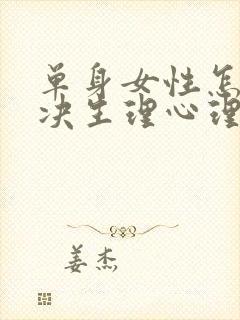 单身女性怎
决生理心理
姜杰